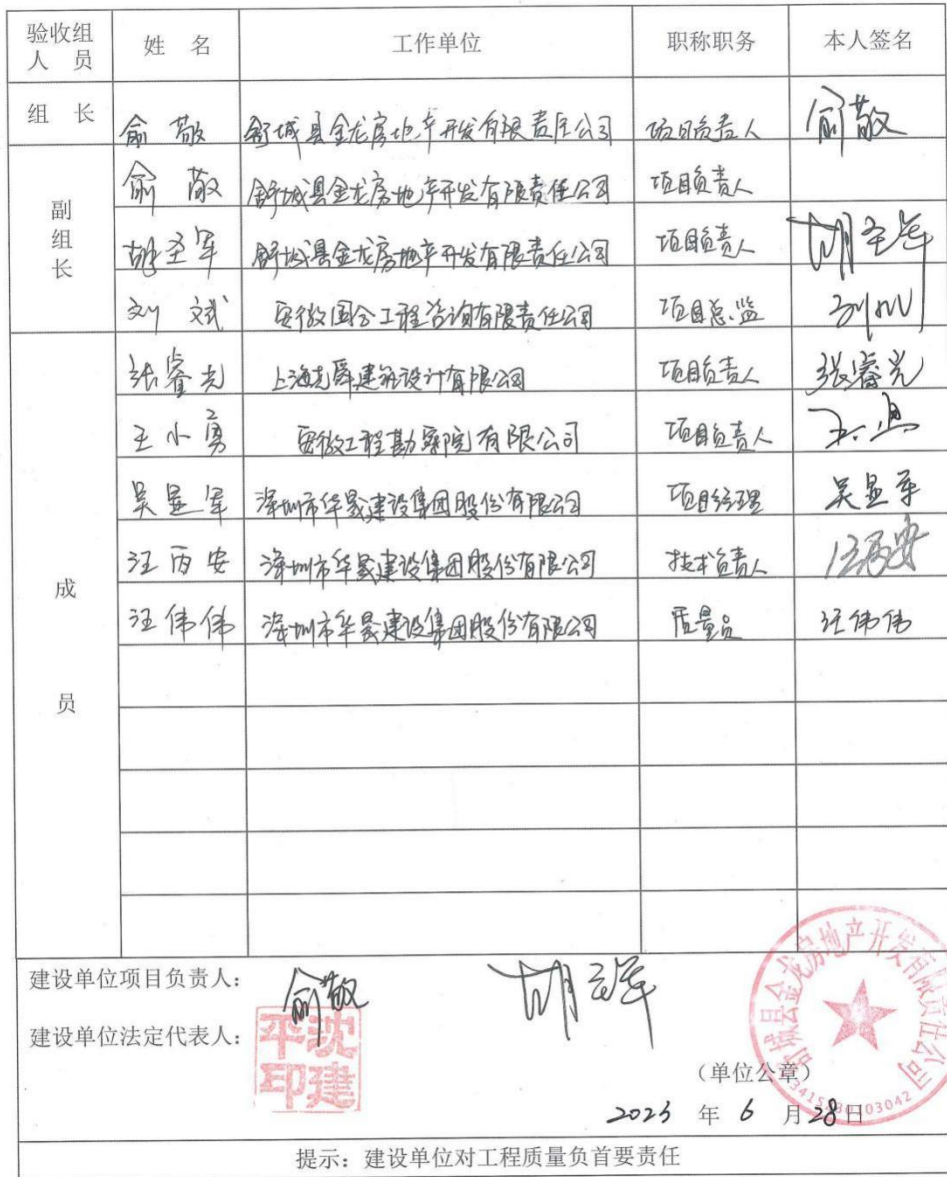 验收组人员 姓 名 工作单位 职称职务 本人签名
组 长 俞敬 舒城县金龙房地产开发有限责任公司 项目负责人 俞敬
副组长 俞敬 舒城县金龙房地产开发有限责任公司 项目负责人
胡圣军 舒城县金龙房地产开发有限责任公司 项目负责人 胡圣军
刘斌 安徽国合工程咨询有限责任公司 项目总监 刘斌
成员 张睿光 上海尧舜建筑设计有限公司 项目负责人 张睿光
王小勇 安徽工程勘察院有限公司 项目负责人
吴显军 深圳市华晟建设集团股份有限公司 项目经理 吴显军
汪丙安 深圳市华晟建设集团股份有限公司 技术负责人 汪丙安
汪伟伟 深圳市华晟建设集团股份有限公司 质量员 汪伟伟
建设单位项目负责人: 俞敬 胡圣军
建设单位法定代表人: 沈建平印
舒城县金龙房地产开发有限责任公司
(单位公章)
2023 年 6 月 28 日
提示:建设单位对工程质量负首要责任